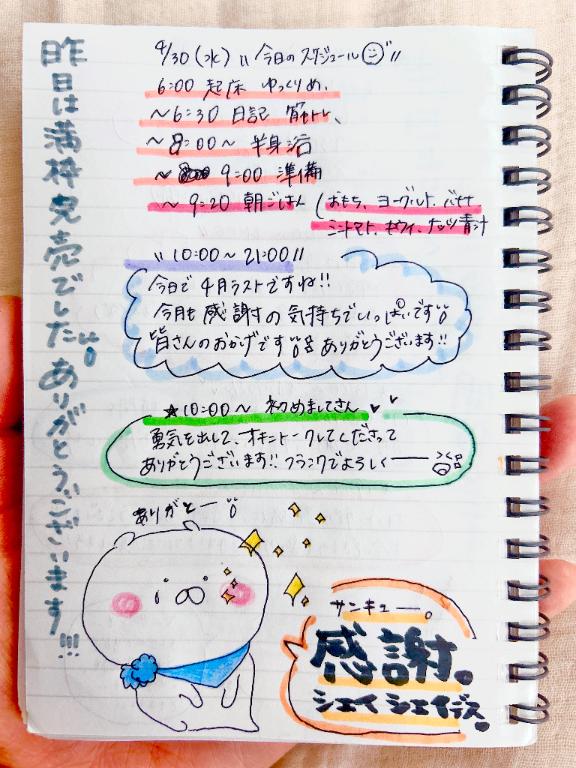 昨日は満枠完売でした。ありがとうございます!!!
4/30(水) 〃今日のスケジュール〃
6:00 起床 ゆっくりめ、
〜6:30 日記 筋トレ、
〜8:00〜 半身浴
〜 9:00 準備
〜9:20 朝ごはん (おもち、ヨーグルト、バナナ
ミニトマト、キウイ、ナッツ青汁
〃10:00〜21:00〃
今日で4月ラストですね!!
今月も感謝の気持ちでいっぱいです
皆さんのおかげです ありがとうございます!!
★10:00〜 初めましてさん
勇気を出して、してくださって
ありがとうございます!! フランクでよろしくー
ありがとー
サンキュー。
感謝。
シェイシェイデス。